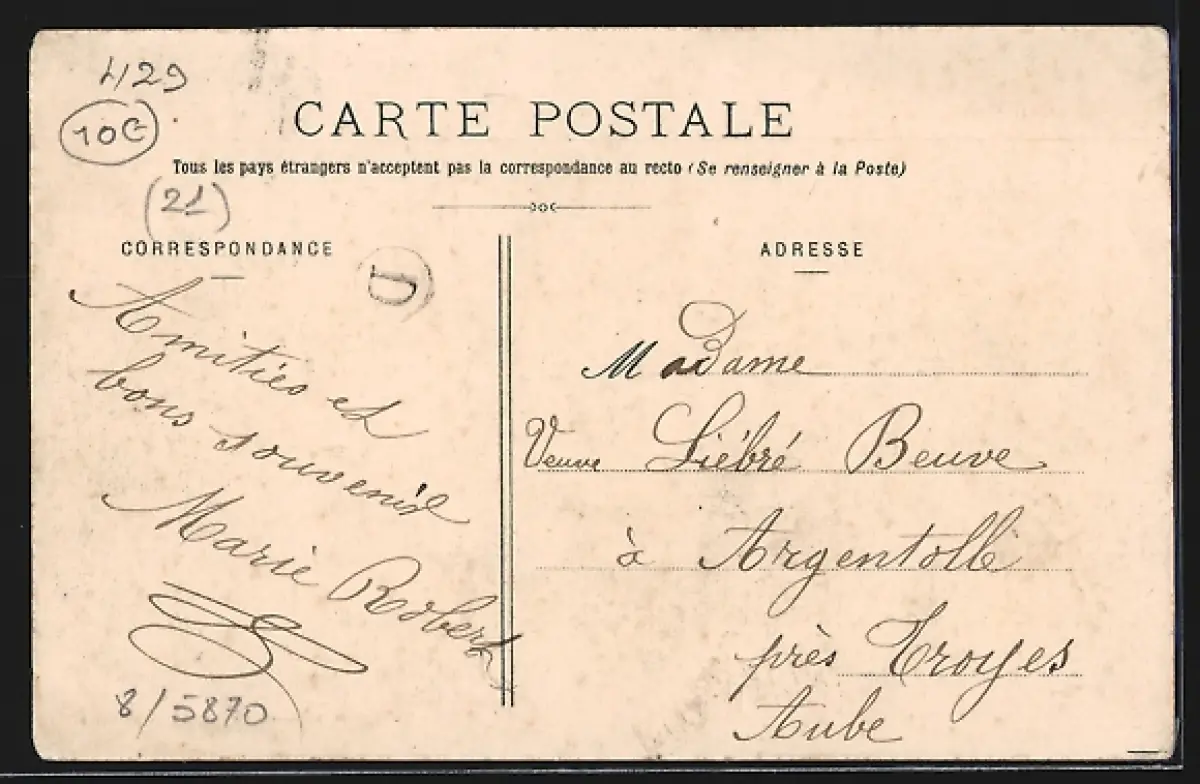 4129
10€
CARTE POSTALE
Tous les pays étrangers n'acceptent pas la correspondance au recto (Se renseigner à la Poste)
(21)
CORRESPONDANCE
D
Amitiés et
bons souvenir
Marie Robert
8/5870
ADRESSE
Madame
Veuve Liébré Beuve
à Argentolle
près Troyes
Aube